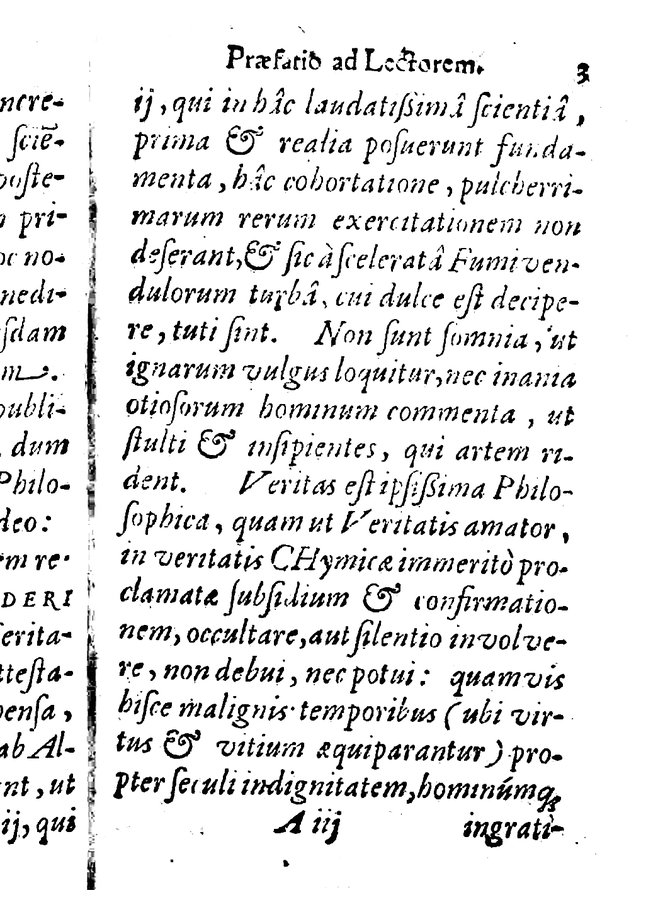 Præfatio ad Lectorem.
3
ncre-
ſciē-
poſte-
pri-
oc no-
nedi-
ſdam
m.
publi-
, dum
Philo-
deo:
em re-
DERI
ſerita-
tteſta-
penſa,
ab Al-
nt, ut
ij, qui
ij, qui in hâc laudatiſſimâ ſcientiâ,
prima & realia poſuerunt funda-
menta, hâc cohortatione, pulcherri-
marum rerum exercitationem non
deſerant, & ſic à ſceleratâ Fumiven-
dulorum turbâ, cui dulce eſt decipe-
re, tuti ſint. Non ſunt ſomnia, ut
ignarum vulgus loquitur, nec inania
otioſorum hominum commenta, ut
ſtulti & inſipientes, qui artem ri-
dent. Veritas eſt ipſiſſima Philo-
ſophica, quam ut Veritatis amator,
in veritatis CHymicæ immeritò pro-
clamatæ ſubſidium & confirmatio-
nem, occultare, aut ſilentio involve-
re, non debui, nec potui: quamvis
hiſce malignis temporibus (ubi vir-
tus & vitium æquiparantur) pro-
pter ſeculi indignitatem, hominúmq;
A iij
ingrati-